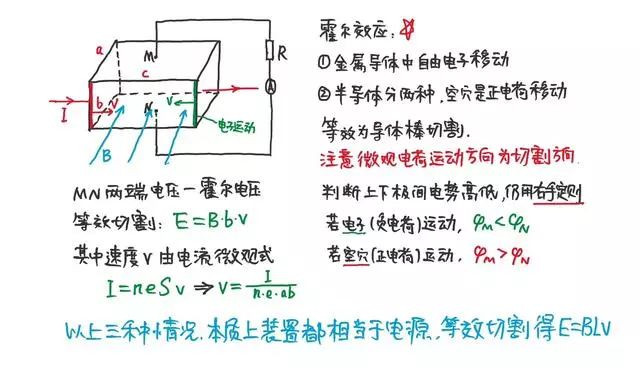 霍尔效应:
①金属导体中自由电子移动
②半导体分两种,空穴是正电荷移动
等效为导体棒切割.
注意微观电荷运动方向为切割方向.
判断上下极间电势高低,仍用右手定则
若电子(负电荷)运动, φM<φN
若空穴(正电荷)运动, φM>φN
a
M
c
R
A
I
b
v
N
v
B
电子运动
MN两端电压—霍尔电压
等效切割: E=B·b·v
其中速度v由电流微观式
I=neSv ⇒ v= I/n·e·ab
以上三种情况,本质上装置都相当于电源,等效切割得E=BLV